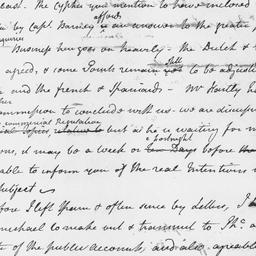 least. The Cypher you mention to have inclosed
affords
by Capt. Barney is an answer to the greater
quiries
Business here goes on heavily. The Dutch &
still
agreed, & some Points remain to be adjusted
and the french & Spaniards. Mr Hartley ha
ommission to conclude with us. we are discussing
commercial Regulations
but as he is waiting for m
a fortnight
ons, it may be a week or ten Days before
able to inform you of the real Intentions
subject
fore I left Spain & often since by letters, I
michael to make out & transmit to Ph.
te of the public Accounts, and also agreeable